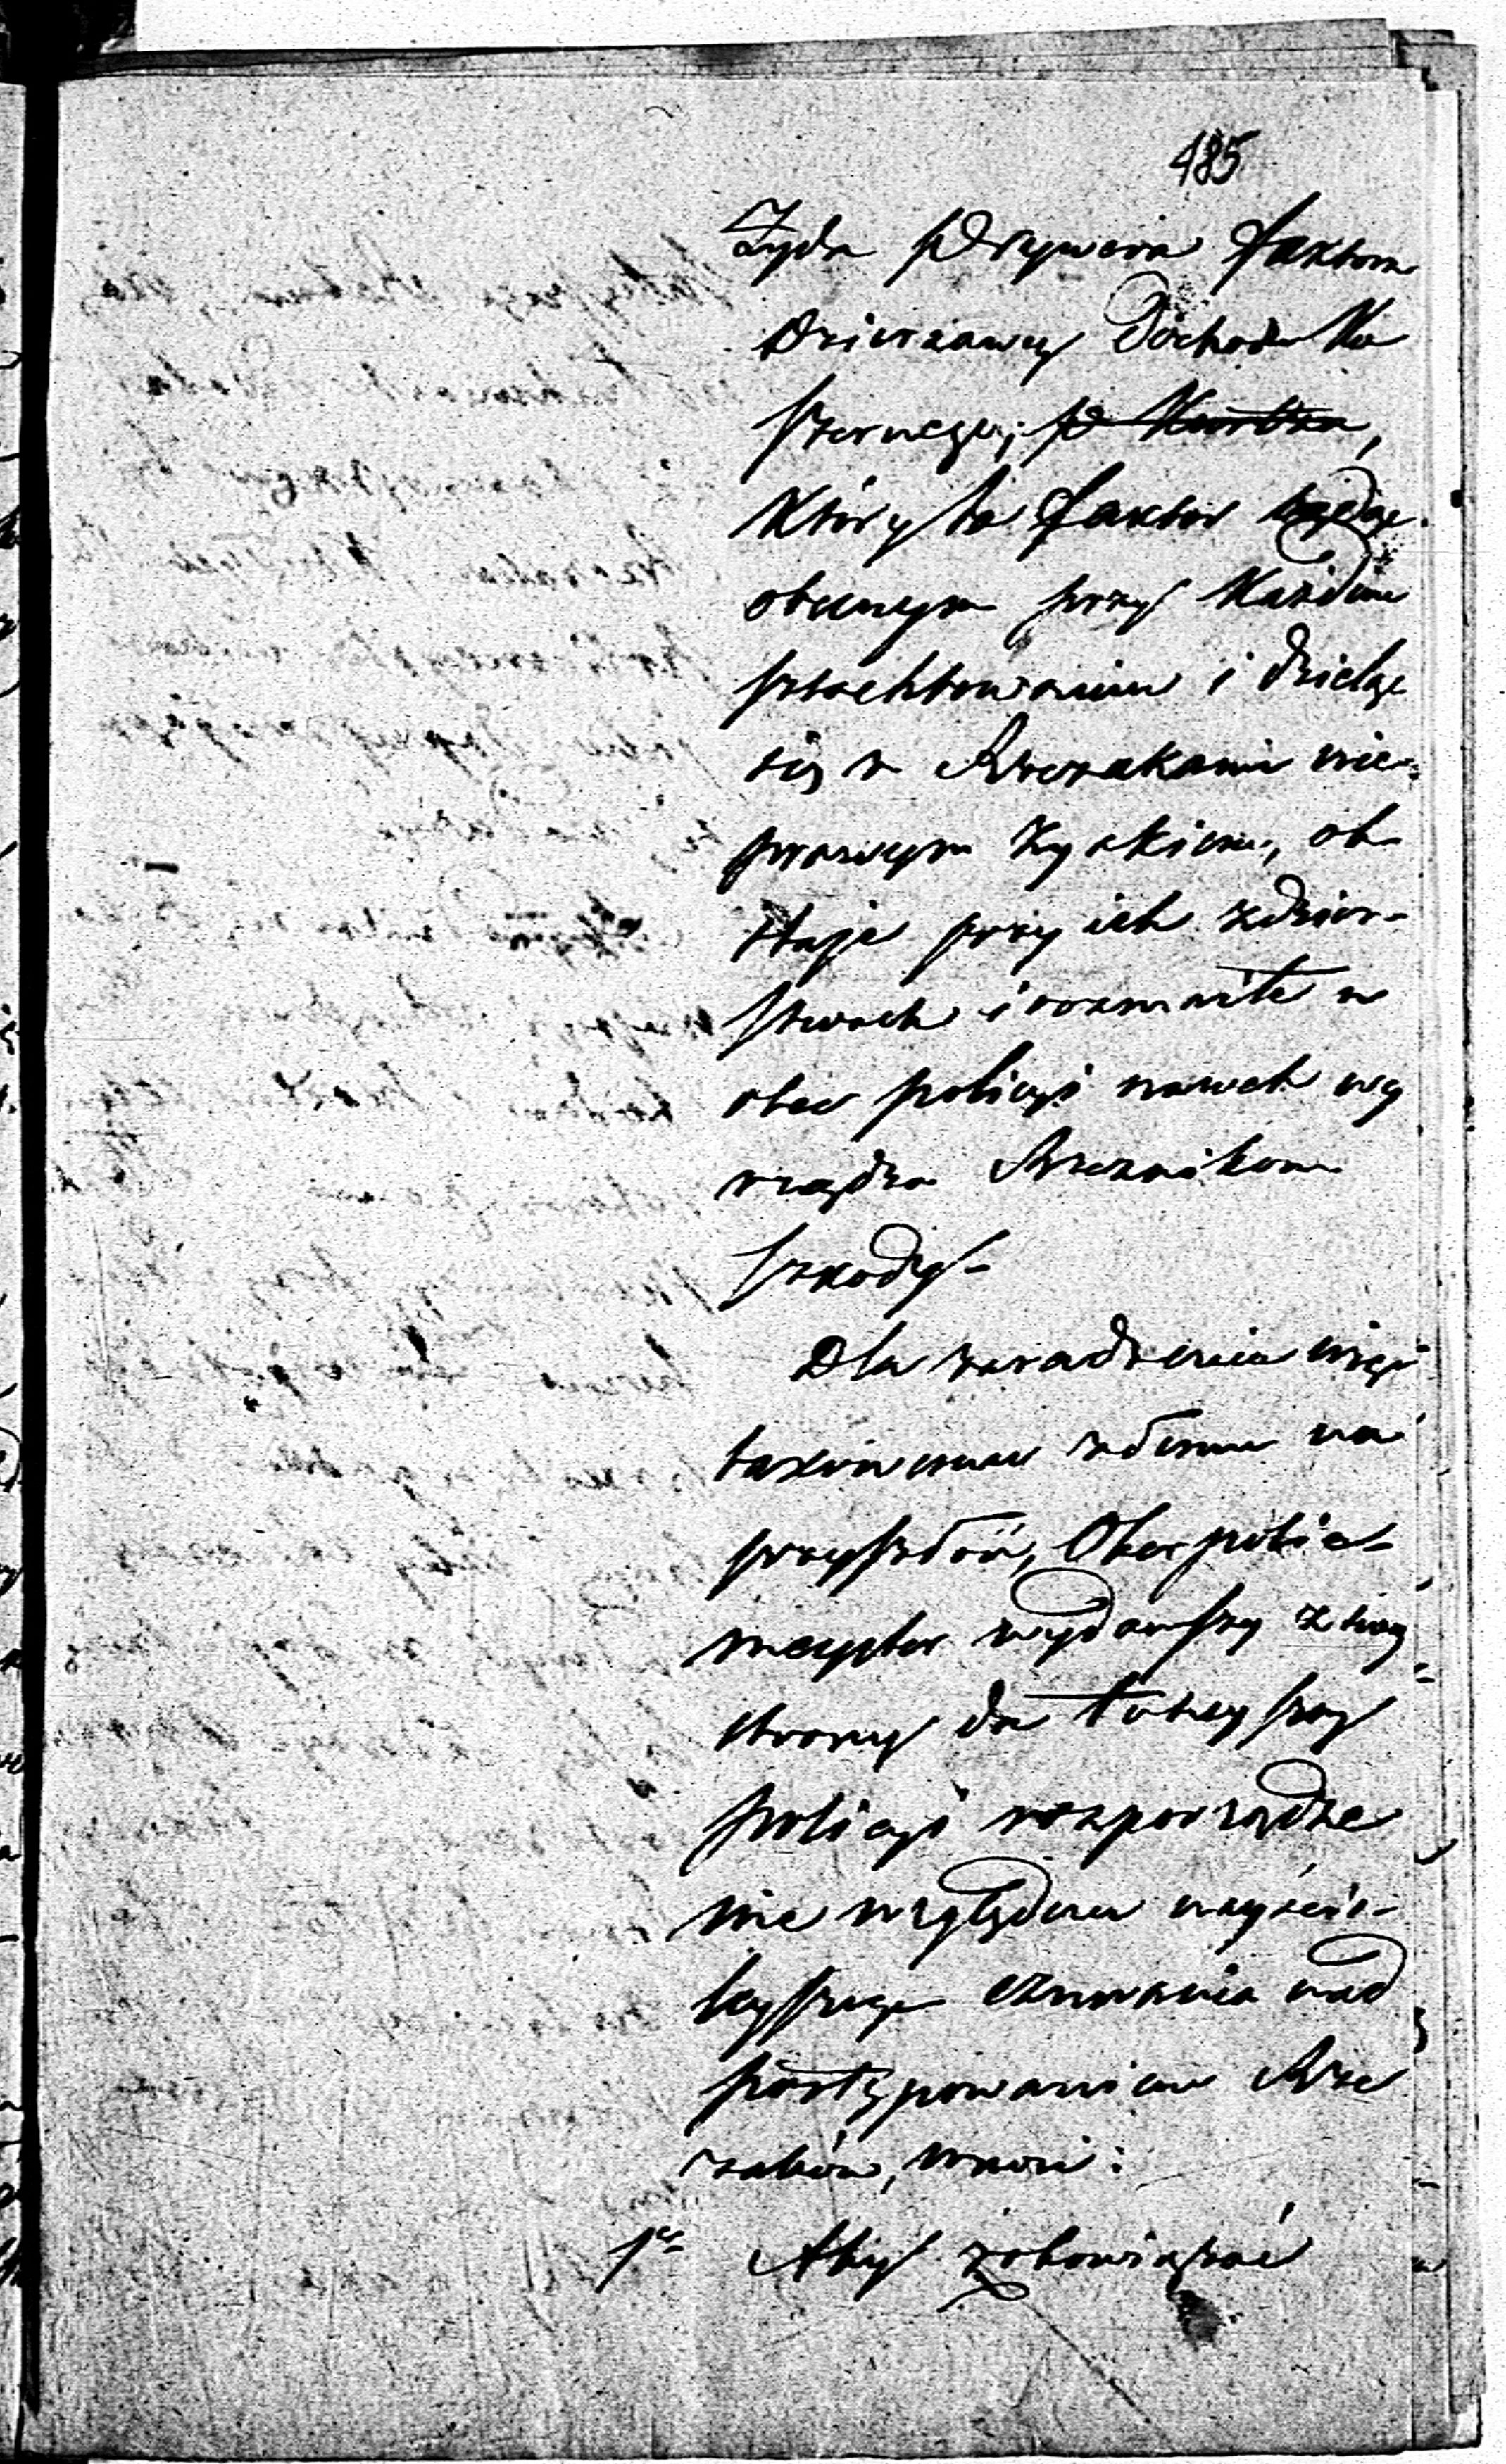 485
Żyda Drzewera faktora
Dzierzawcy Dochodu Ko
szernego, p Kurtza,
który to faktor będąc
obecnym przy każdem
szlachtowaniu i dzieląc
się z Rzezakami nie-
prawym zyskiem, ob
staje przy ich zdzier-
stwach i rozmaite w
obec policyi nawet wy
rządza Rzeznikom
szkody
Dla zaradzenia więc
takowemu złemu na
przyszłość, Oberpolic-
mayster wydawszy z swey
strony do tuteyszey
policyi rozporządze
nie względem nayściś-
leyszego czuwania nad
postępowaniem Rze
zaków, wnosi:
1<sup>e</sup> Aby zobowiązać